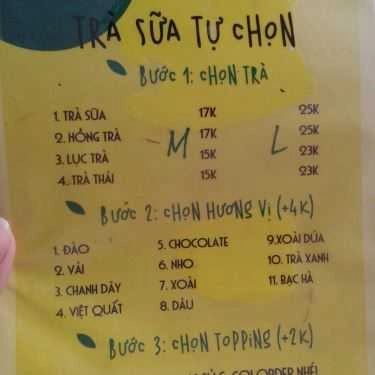 TRÀ SỮA TỰ CHỌN
BƯỚC 1: CHỌN TRÀ
1. TRÀ SỮA 17K 25K
2. HỒNG TRÀ 17K 25K
M L
3. LỤC TRÀ 15K 23K
4. TRÀ THÁI 15K 23K
BƯỚC 2: CHỌN HƯƠNG VỊ (+4K)
1. ĐÀO 5. CHOCOLATE 9.XOÀI DỨA
2. VẢI 6. NHO 10. TRÀ XANH
3. CHANH DÂY 7. XOÀI 11. BẠC HÀ
4. VIỆT QUẤT 8. DÂU
BƯỚC 3: CHỌN TOPPINGS (+2K)
COLORDER NHÉ!